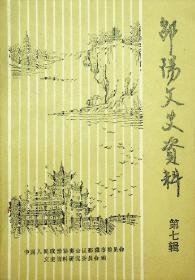 邵陽文史資料
第七辑
中国人民政治协商会议邵阳市委员会
文史资料研究委员会编